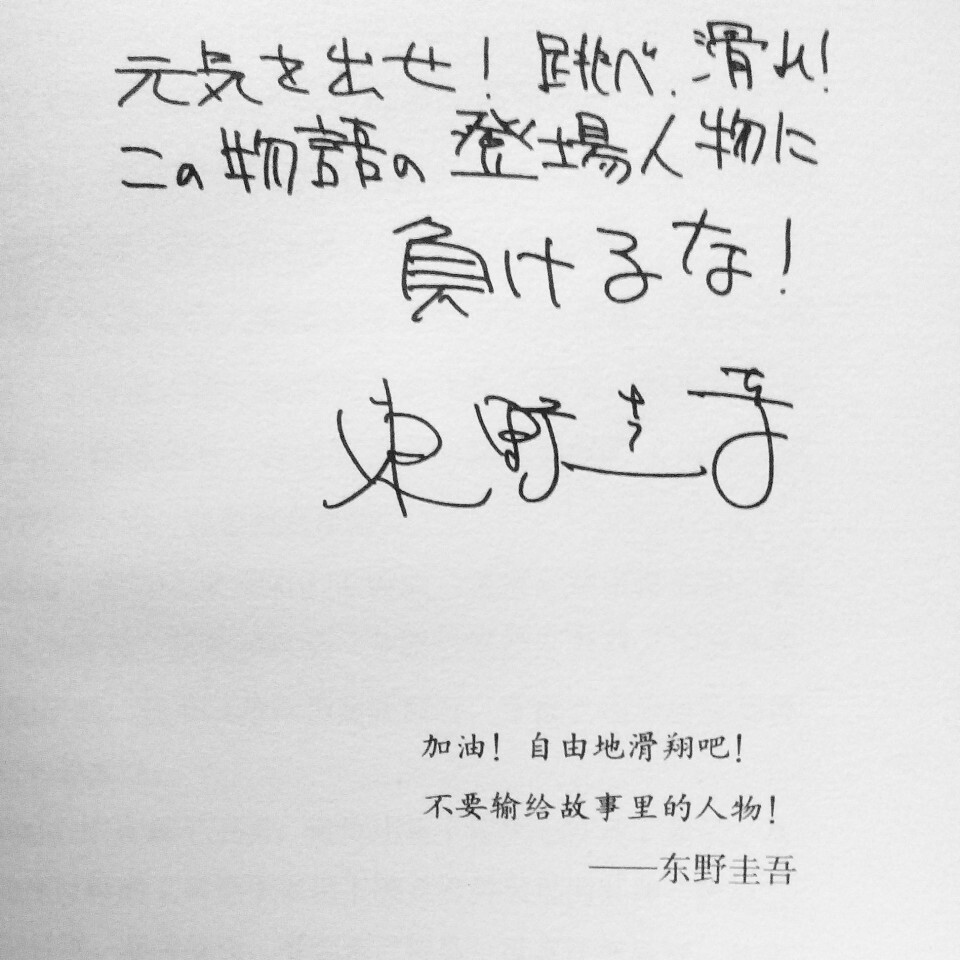 元気を出せ！跳べ、滑れ！
この物語の登場人物に
負けるな！
東野圭吾
加油！自由地滑翔吧！
不要输给故事里的人物！
——东野圭吾